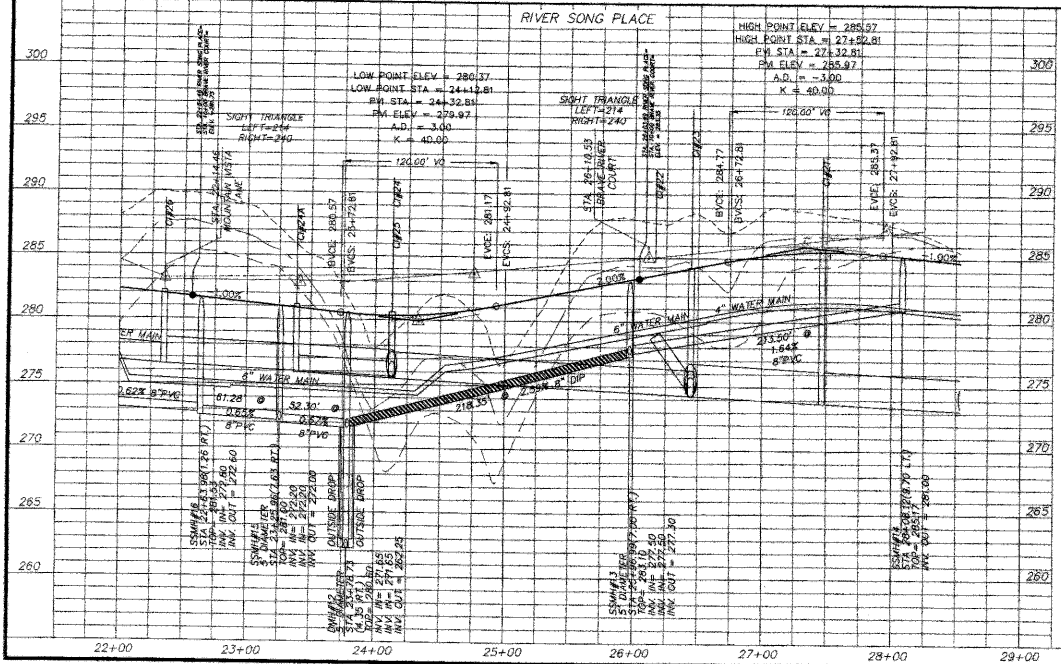 RIVER SONG PLACE
HIGH POINT ELEV = 285.57
HIGH POINT STA = 27+52.81
PVI STA = 27+32.81
PVI ELEV = 285.97
A.D. = -3.00
K = 40.00
120.00' VC
LOW POINT ELEV = 280.37
LOW POINT STA = 24+12.81
PVI STA = 24+32.81
PVI ELEV = 279.97
A.D. = 3.00
K = 40.00
120.00' VC
SIGHT TRIANGLE
LEFT=214
RIGHT=240
SIGHT TRIANGLE
LEFT=214
RIGHT=240
MOUNTAIN VISTA
LANE
STA 26+10.53
BRAVE RIVER
COURT
CI#26
CI#24A
BVCE: 280.57
BVCS: 23+72.81
CI#25
CI#24
EVCE: 281.17
EVCS: 24+92.81
CI#22
BVCE: 284.77
BVCS: 26+72.81
CI#21
EVCE: 285.37
EVCS: 27+92.81
-1.00%
2.00%
-1.00%
ER MAIN
6" WATER MAIN
6" WATER MAIN
4" WATER MAIN
0.62% 8"PVC
61.28'
0.65%
8"PVC
52.30'
0.67%
8"PVC
218.35'
2.59% 8" DIP
213.50'
1.64%
8"PVC
SSMH#16
STA 22+63.98(1.26 RT.)
TOP= 281.53
INV. IN= 272.80
INV. OUT = 272.60
SSMH#15
5' DIAMETER
TOP= 281.00
INV. IN= 272.20
INV. IN= 272.20
INV. OUT = 272.00
DMH#12
5' DIAMETER
STA 23+78.73
(4.35 RT.)
INV. IN= 271.65
INV. IN= 271.65
INV. OUT = 262.25
OUTSIDE DROP
OUTSIDE DROP
SSMH#13
5' DIAMETER
TOP= 283.10
INV. IN= 277.50
INV. IN= 277.50
INV. OUT = 277.30
SSMH#14
STA 28+08.12(9.70 LT.)
TOP= 285.17
INV. OUT = 281.00
300
295
290
285
280
275
270
265
260
300
295
290
285
280
275
270
265
260
22+00
23+00
24+00
25+00
26+00
27+00
28+00
29+00